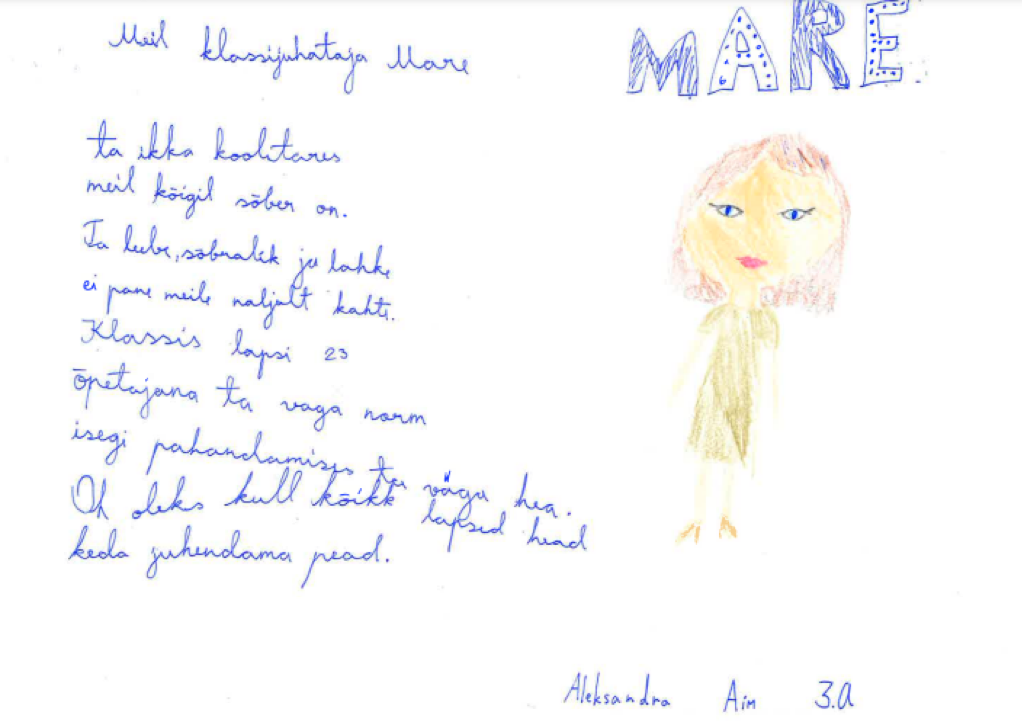 Meil klassijuhataja Mare
MARE
ta ikka koolitares
meil kõigil sõber on.
Ta leebe, sõbralik ja lahke
ei pane meile naljalt kahti.
Klassis lapsi 23
õpetajana ta vaga norm
isegi pahandamises ta väga hea.
Oh oleks kull kõikk lapsed head
keda juhendama pead.
Aleksandra Aim 3.a